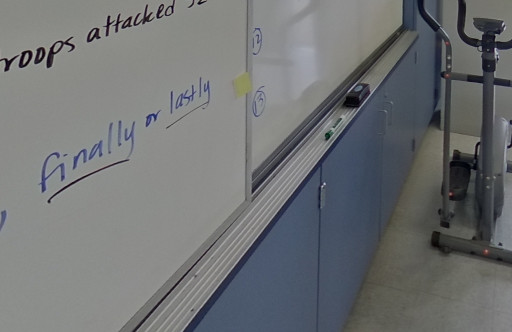 roops attacked
12
finally or lastly
13